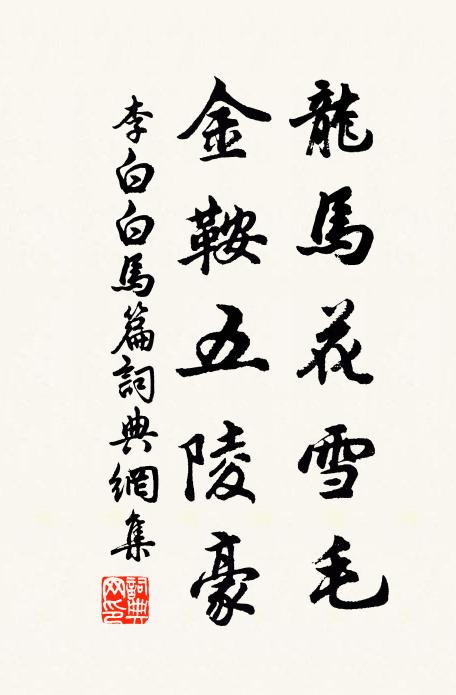 龍馬花雪毛
金鞍五陵豪
李白白馬篇詞典網集
詞典网印